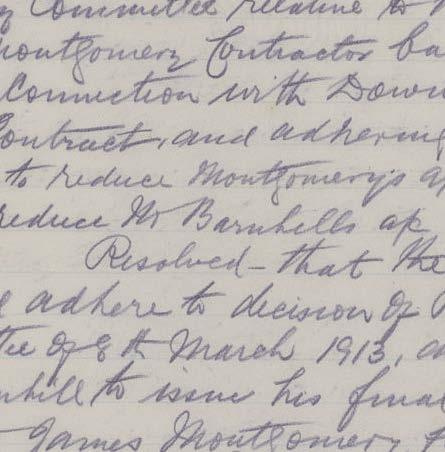 Committee relative to
Montgomery Contractor
Connection with Down
Contract, and adhering
to reduce Montgomery's a
reduce Mr Barnhills ap
Resolved - that the
adhere to decision of
tee of 8th March 1913,
nhill to issue his final
James Montgomery